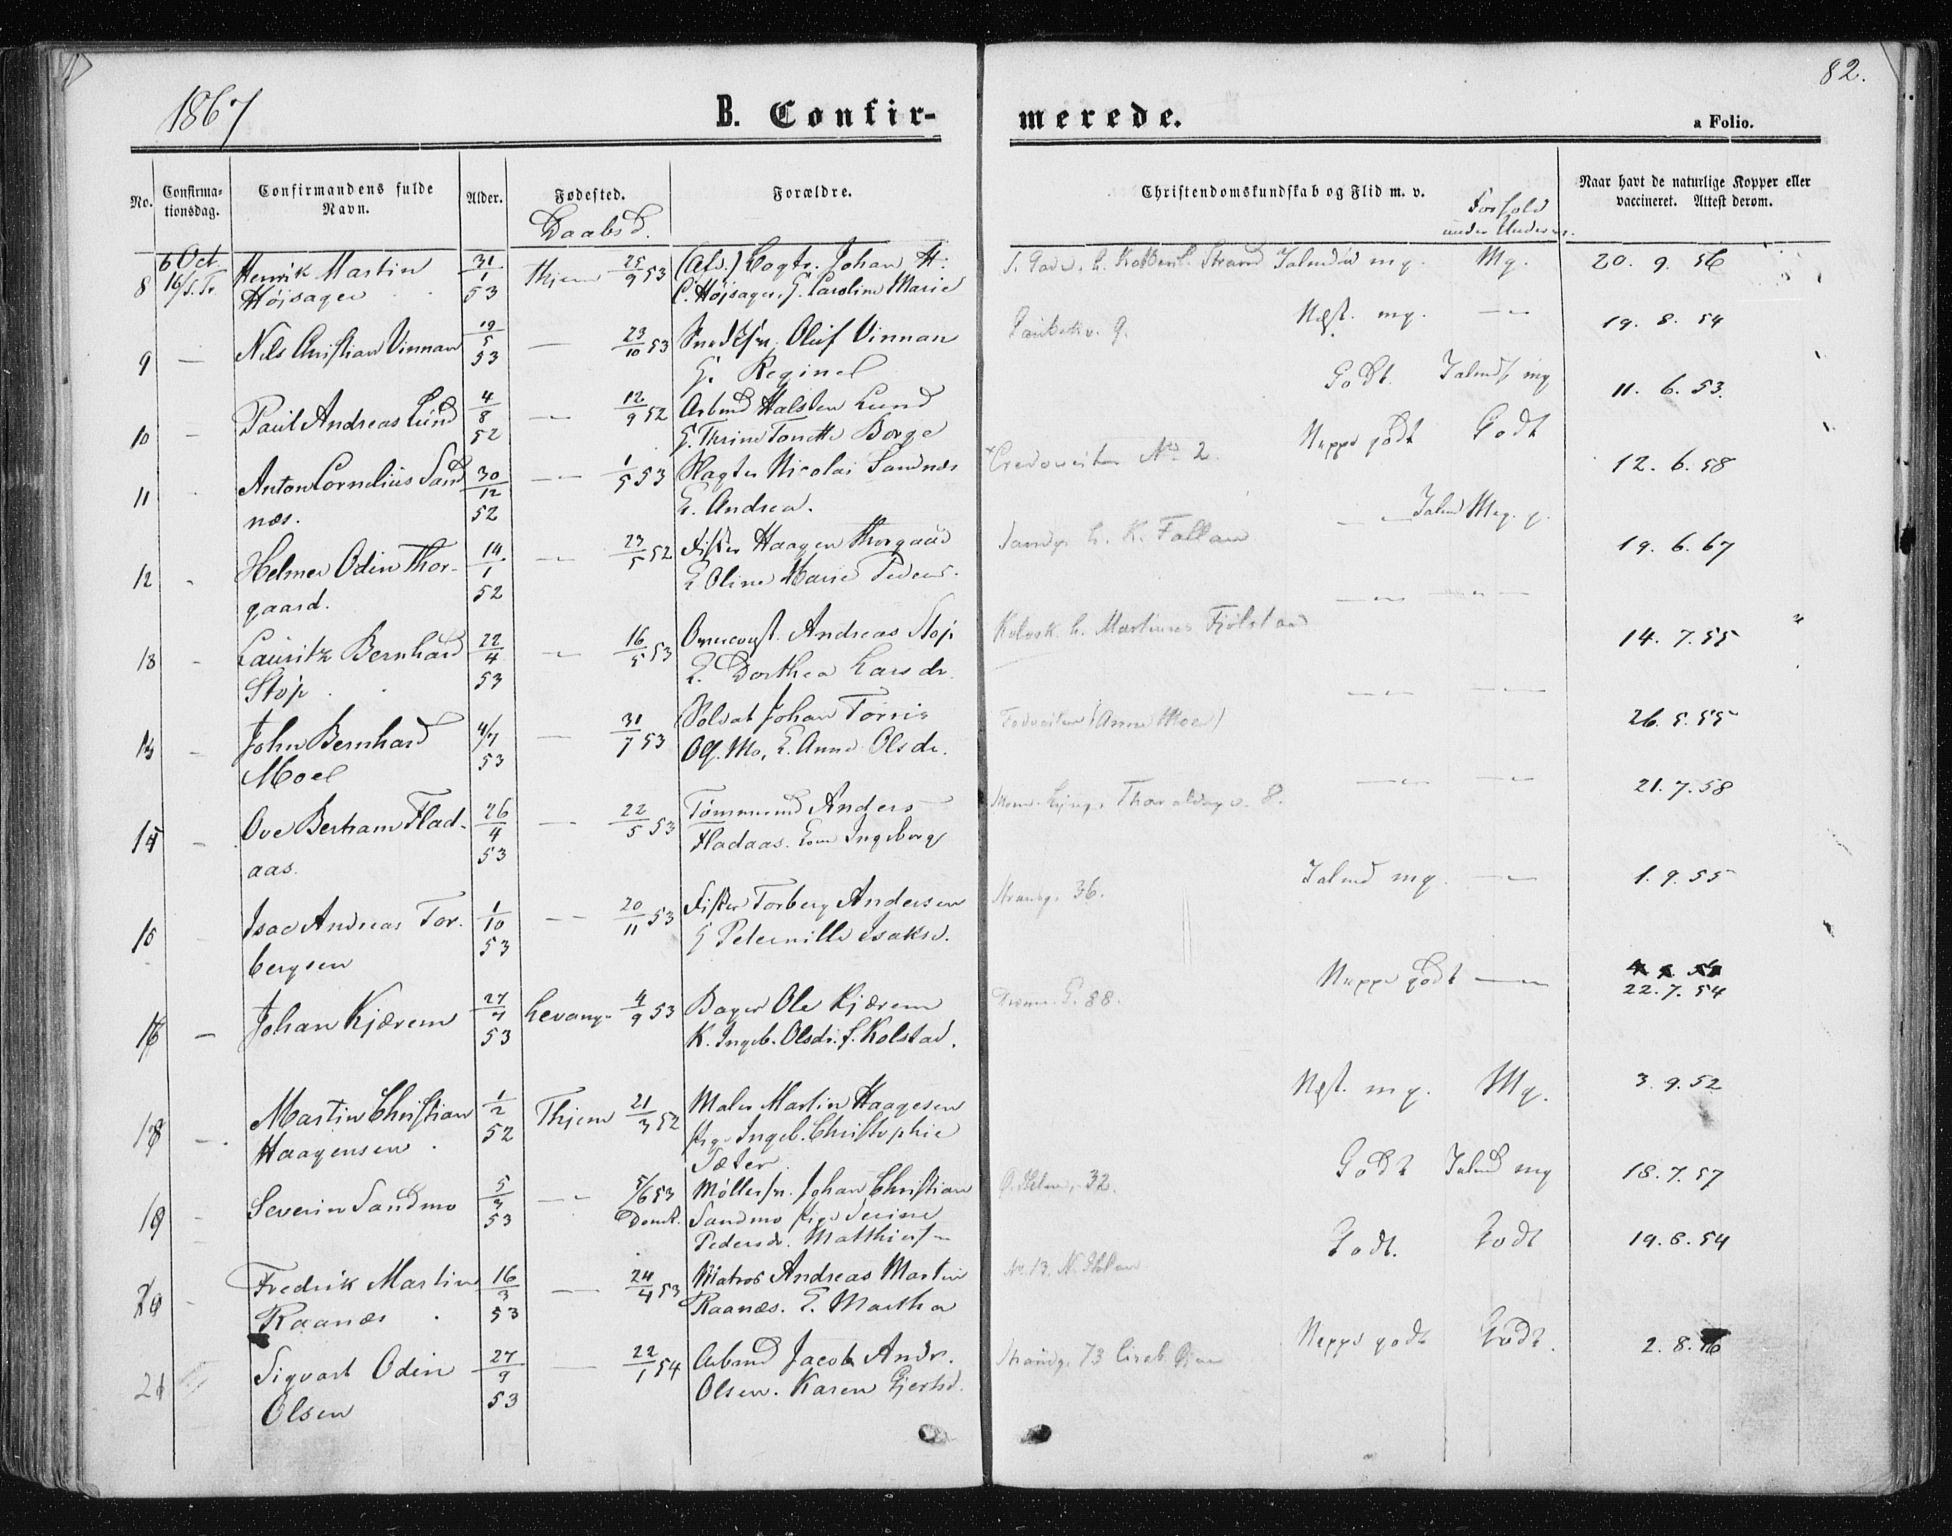 1867
B. Confir-
merede.
82.
a Folio.
No.
Confirma-
tionsdag.
Confirmandens fulde
Navn.
Alder.
Fødested.
Daabsd.
Forældre.
Christendomskundskab og Flid m. v.
Forhold
under Underv.
Naar havt de naturlige Kopper eller
vaccineret. Attest derom.
8 6 Oct. 16/S.Tr. Henrik Martin 31/1 53 Thjem 25/9 53 (Afd.) Johan H.
Højsager C. Højsager, E. Caroline Marie
Strand mg. Mg. 20. 9. 56
9 — Nils Christian Vinnan 19/5 53 — 23/10 53 Snedksv. Oluf Vinnan
E. Regine
9. Næst. mg. — 19. 8. 54
10 — Paul Andreas Lund 4/8 52 — 12/9 52 Arbmd Halsten Lund
E. Thrine Tonette Borge
Godt. mg 11. 6. 53.
11 Anton Cornelius Sand 30/12 52 — 1/5 53 Slagter Nicolai Sandnæs
næs. E. Andrea.
No 2. Neppe godt Godt 12. 6. 58
12 - Helmer Odin Thor- 14/1 52 — 23/5 52 Fisker Haagen Thorgaard
gaard. E. Oline Marie Peders.
h. K. Fallan — Meg. g. 19. 6. 67
13 - Lauritz Bernhard 22/4 53 — 16/5 53 Andreas Støp
Støp E. Dorthea Larsdr.
h. Martinus Fjølstad — — 14. 7. 55
John Bernhard 4/7 53 — 31/7 53 Soldat Johan Torris
Moe Ols. Mo, E. Anne Olsdr.
(Anne Moe) — — 26. 5. 55
15 - Ove Bertram Flad- 26/4 53 — 22/5 53 Tømmermd Anders
aas. Fladaas. Ingeborg
8. — — 21. 7. 58
Isac Andreas Tor- 1/10 53 — 20/11 53 Fisker Torberg Andersen
bergsen E Peternille Isaksd.
Strandg. 36. mg. — 1. 9. 55
16 — Johan Kjærem 27/7 53 Levang. 4/9 53 Bager Ole Kjærem
K. Ingeb. Olsdr. f. Kolstad.
88. Neppe godt — 22. 7. 54
18 — Martin Christian 1/2 52 Thjem 21/3 52 Maler Martin Haagesen
Haagensen pige Ingeb. Christophie
Sæter
Næst. mg. Mg. 3. 9. 52
19 - Severin Sandmo 5/3 53 — 5/6 53 Møllersv. Johan Christian
Domk. Sandmo pige Serine
Pedersdr. Matthies
32. Godt mg 18. 7. 57
20 - Fredrik Martin 16/3 53 — 24/4 53 Matros Andreas Martin
Raanæs E. Martha
No. 13. N. Ihlen Godt. Godt 19. 8. 54
21 Sigvart Odin 27/9 53 — 22/1 54 Arbmd Jacob Andr.
Olsen Olsen. Karen Gjertsd.
Strandg. 73 Neppe godt Godt. 2. 8.